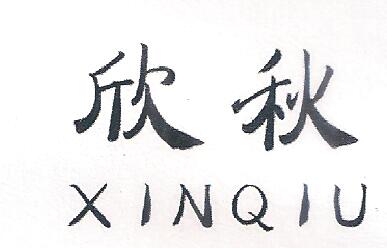 欣秋
XINQIU